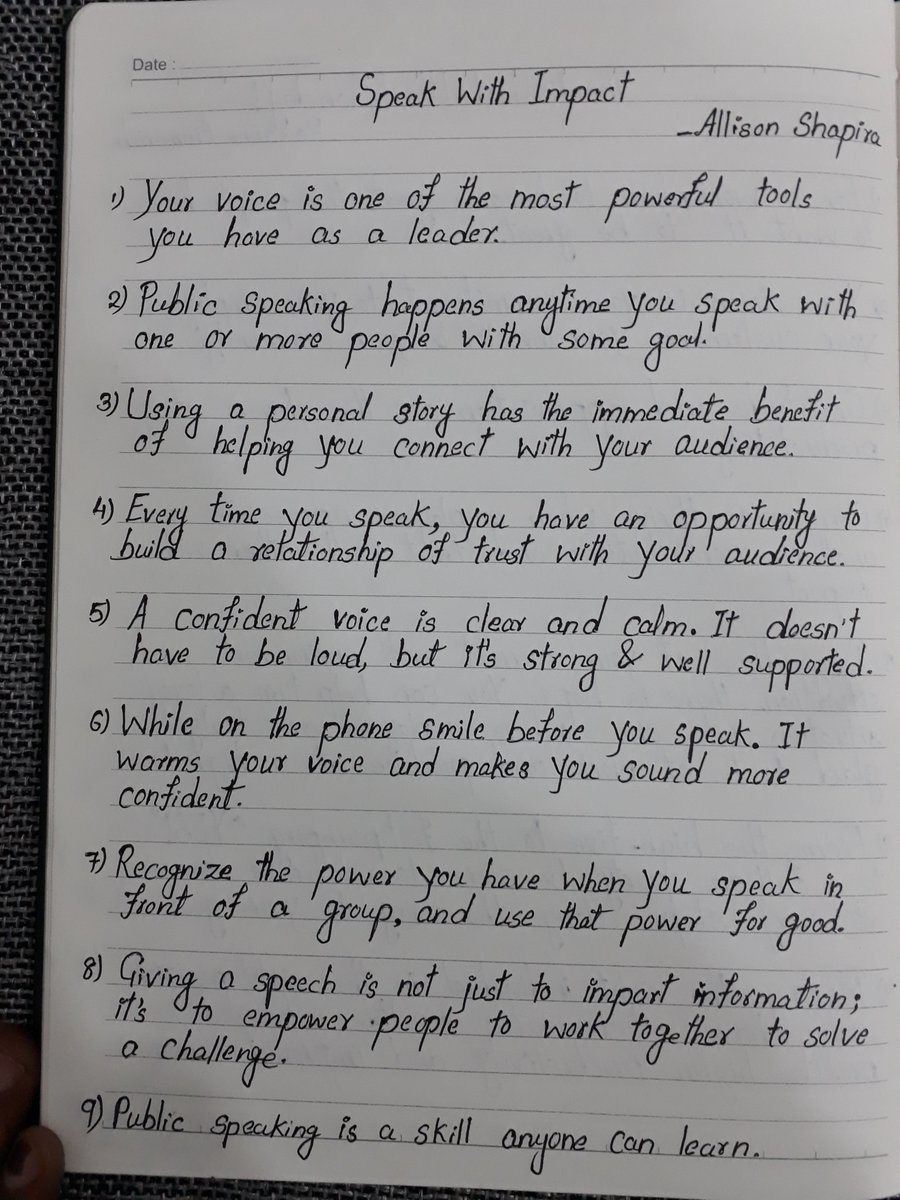 Date :
Speak With Impact
-Allison Shapira
1) Your voice is one of the most powerful tools
you have as a leader.
2) Public speaking happens anytime you speak with
one or more people with some goal.
3) Using a personal story has the immediate benefit
of helping you connect with your audience.
4) Every time you speak, you have an opportunity to
build a relationship of trust with your audience.
5) A confident voice is clear and calm. It doesn't
have to be loud, but it's strong & well supported.
6) While on the phone smile before you speak. It
warms your voice and makes you sound more
confident.
7) Recognize the power you have when you speak in
front of a group, and use that power for good.
8) Giving a speech is not just to impart information;
it's to empower people to work together to solve
a challenge.
9) Public speaking is a skill anyone can learn.